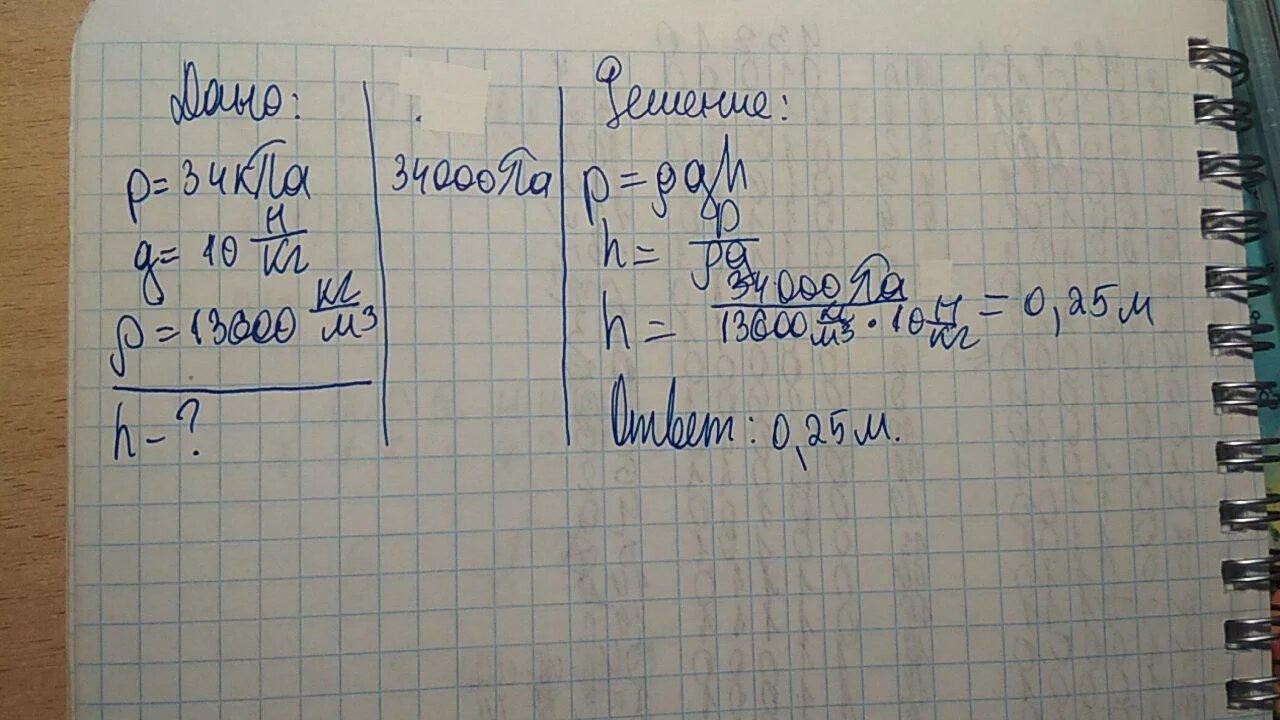 Дано:
p = 34 кПа
g = 10 Н/кг
ρ = 13600 кг/м3
h - ?
34000 Па
Решение:
p = ρgh
h = p/ρg
h = 34000 Па/13600 кг/м3 · 10 Н/кг = 0,25 м
Ответ: 0,25 м.